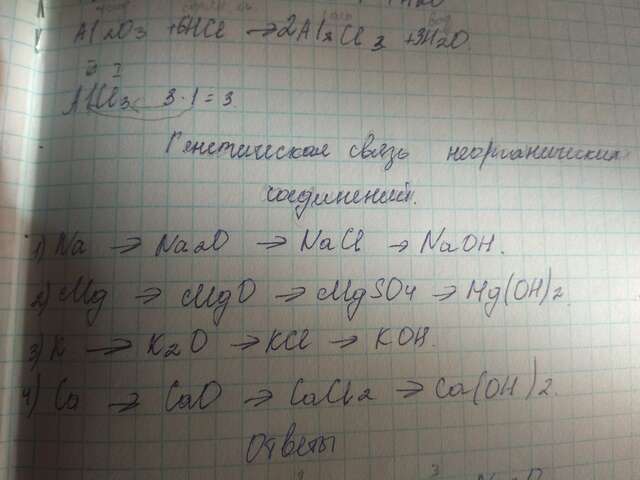 Al2O3 +6HCl →2Al2Cl3 +3H2O.
3 I
AlCl3 3·1=3.
Генетическая связь неорганических
соединений.
1) Na → Na2O → NaCl → NaOH.
2) Mg → MgO → MgSO4 → Mg(OH)2.
3) K → K2O → KCl → KOH.
4) Ca → CaO → CaCl2 → Ca(OH)2.
Ответы